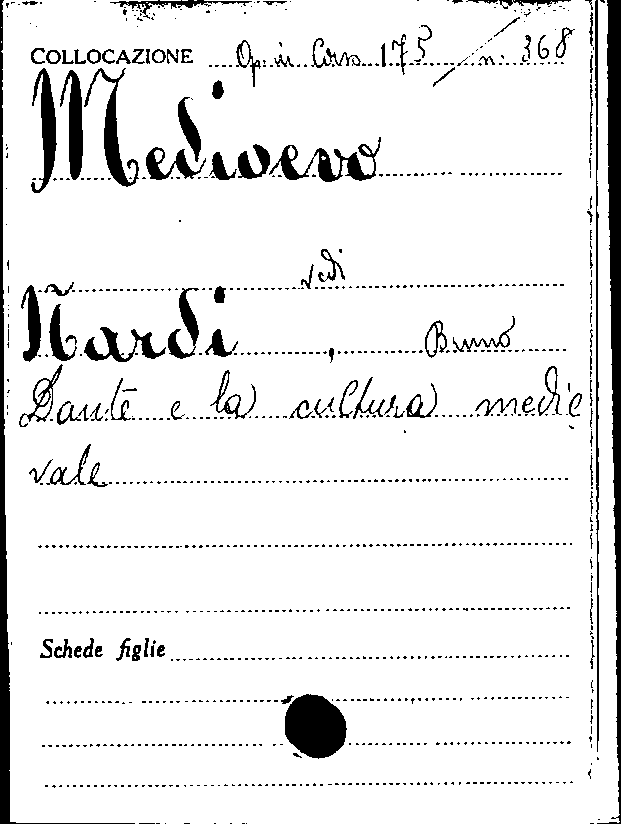 COLLOCAZIONE Op. in Corso 175 / n. 368
Medioevo
vedi
Nardi, Bruno
Dante e la cultura medie
vale
Schede figlie